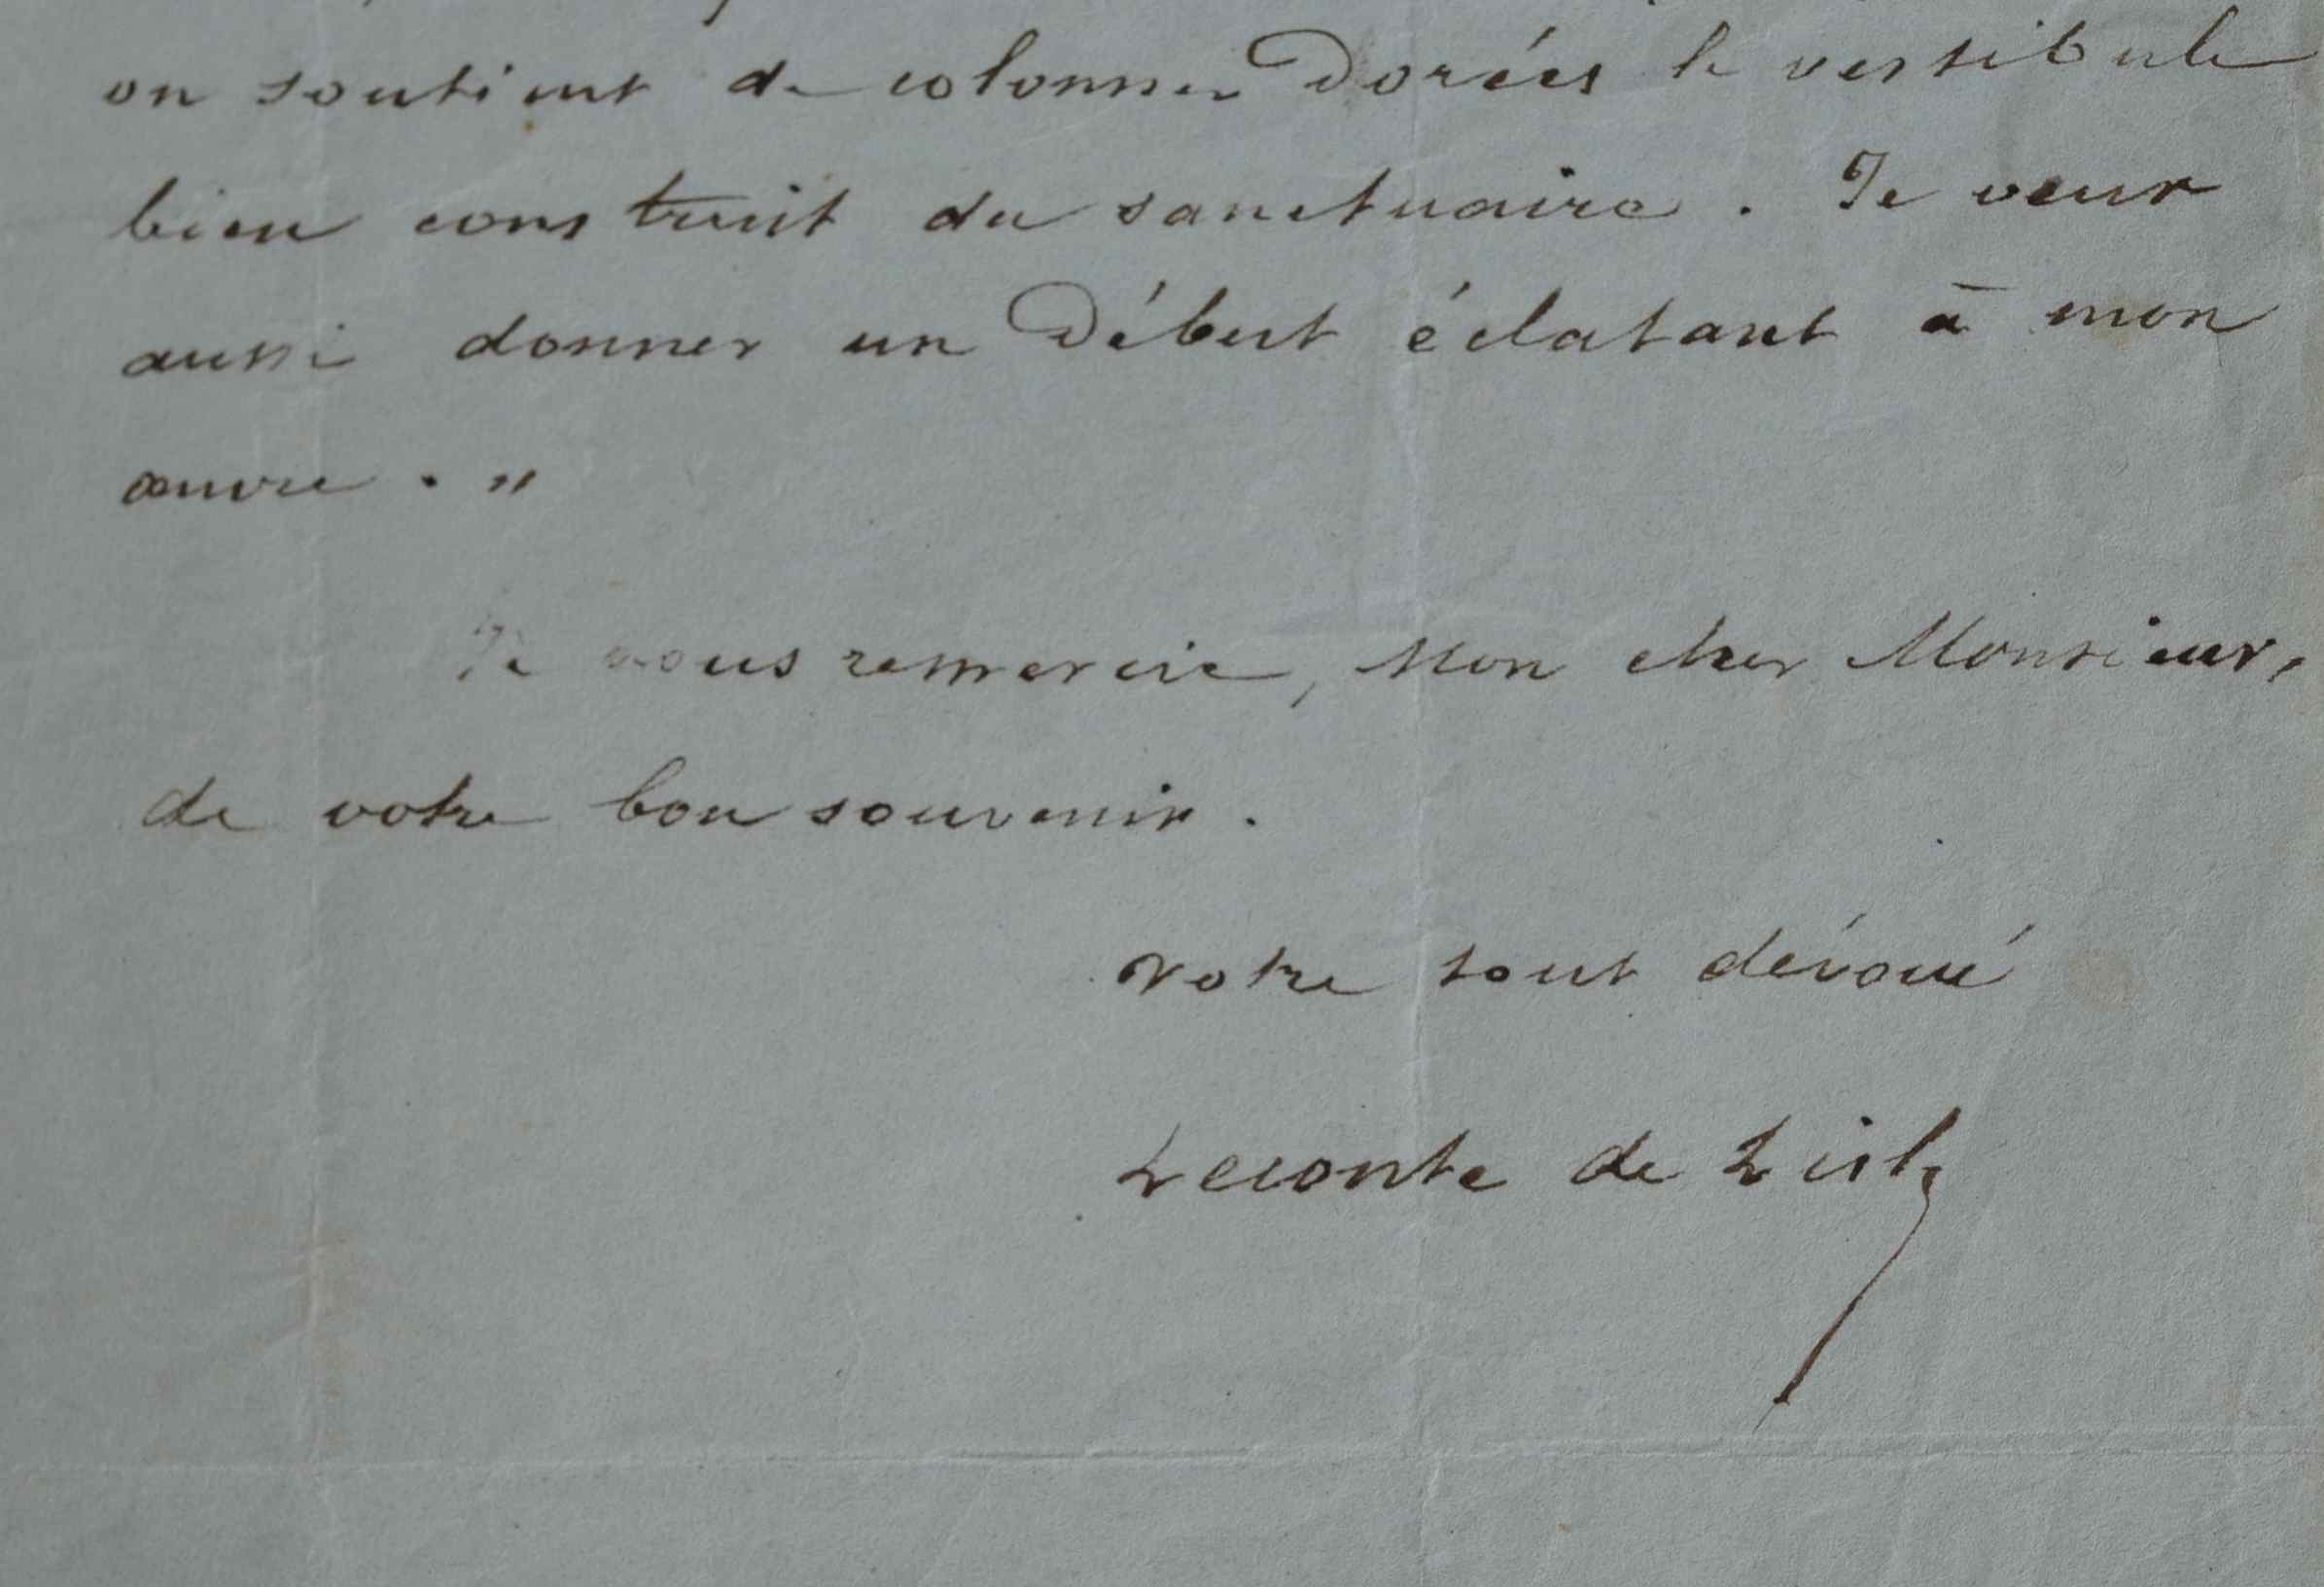 on soutient de colonnes Dorées le vestibule
bien construit du sanctuaire. Je veux
aussi donner un Début éclatant à mon
œuvre. "
Je vous remercie, Mon cher Monsieur,
de votre bon souvenir.
Votre tout dévoué
Leconte de Lisle